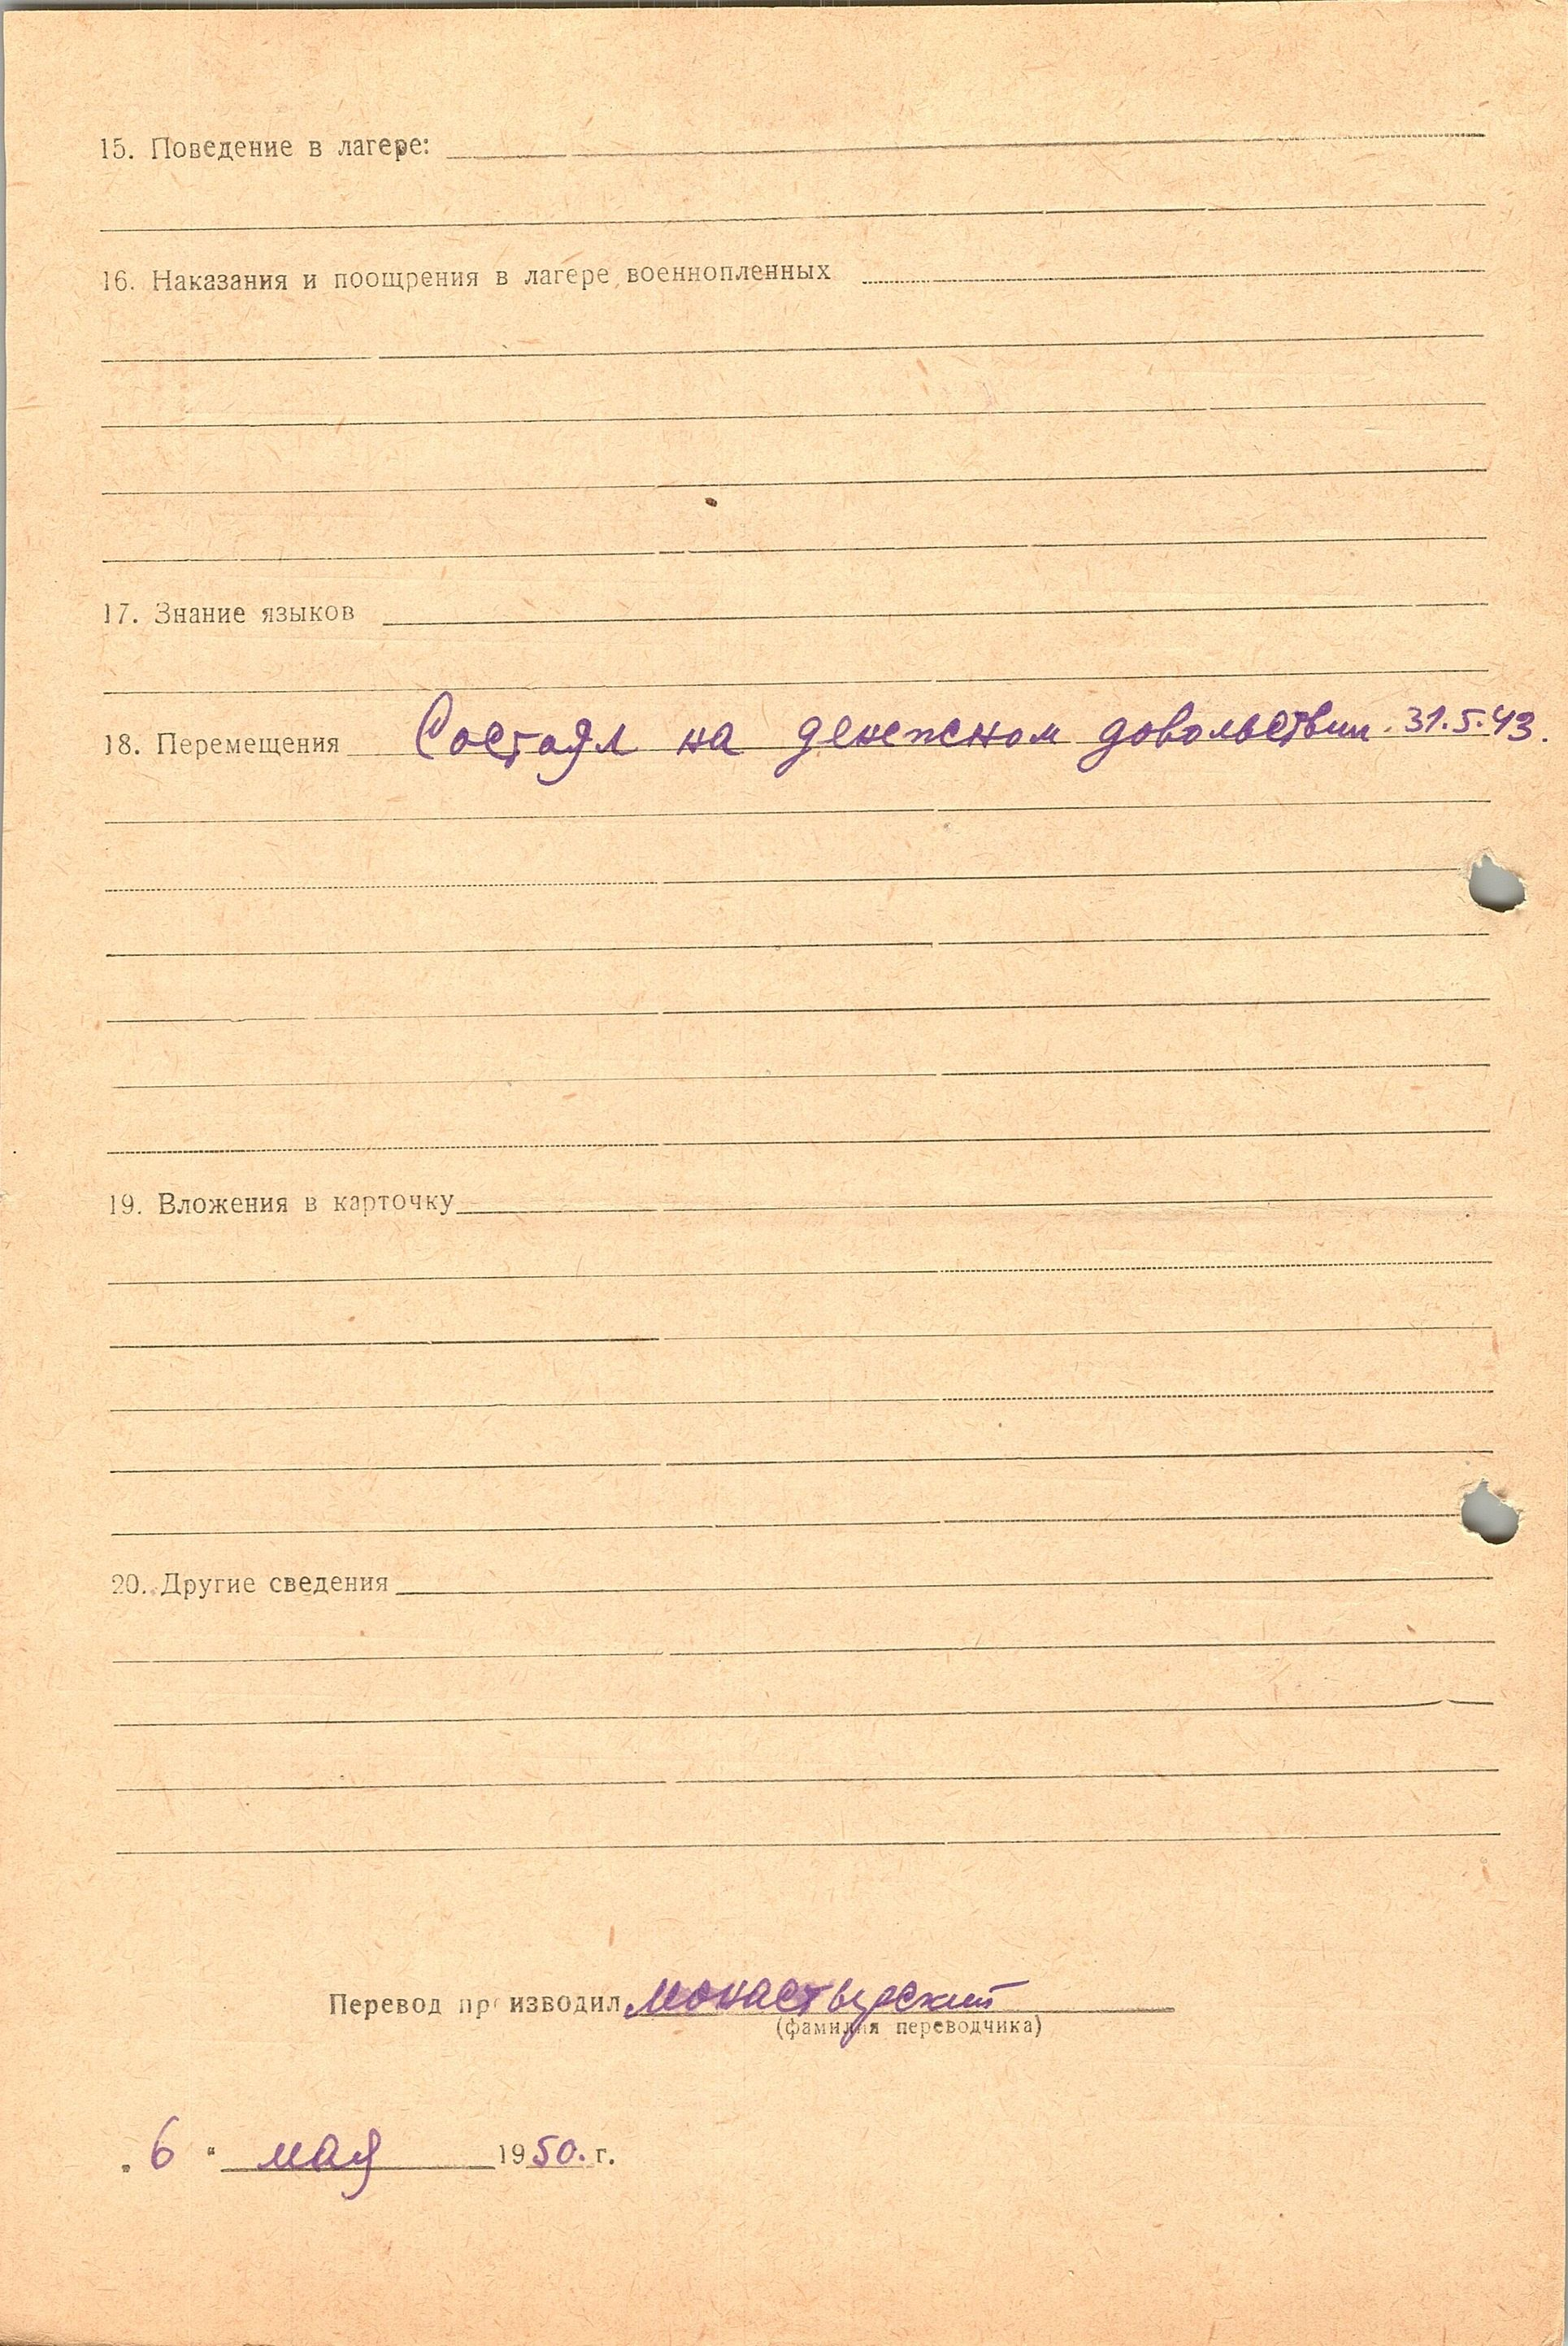 15. Поведение в лагере:
16. Наказания и поощрения в лагере военнопленных
17. Знание языков
18. Перемещения Состоял на денежном довольствии. 31.5.43.
19. Вложения в карточку
20. Другие сведения
Перевод производил Монастырский
(фамилия переводчика)
„6" мая 1950. г.